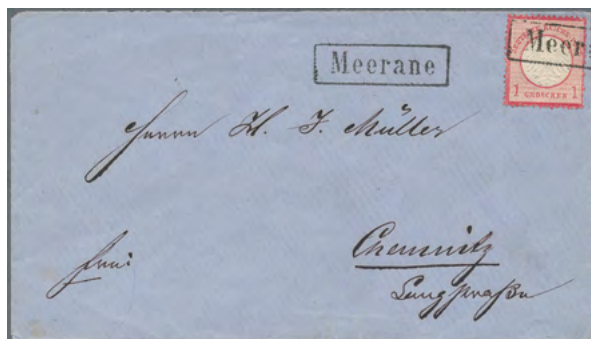 Meerane
Meer
1 GROSCHEN 1
Herrn H. F. Müller
Chemnitz
frei:
Langstraße